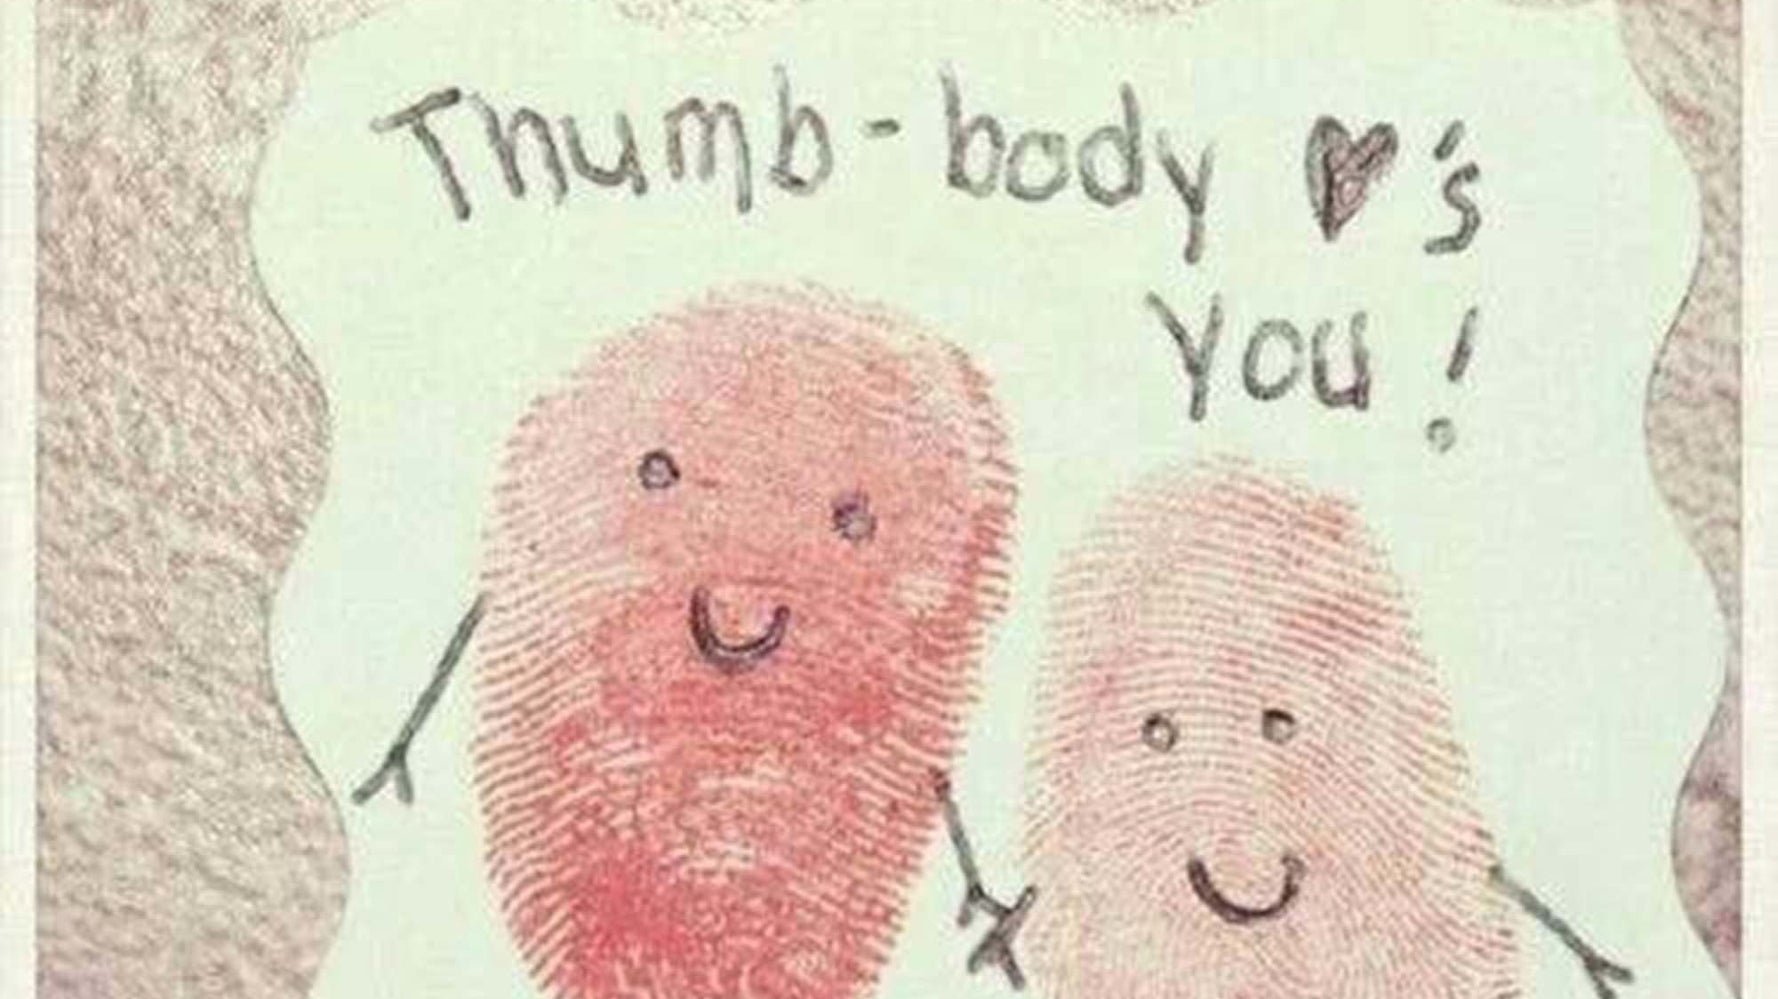 Thumb-body ♥'s
you!